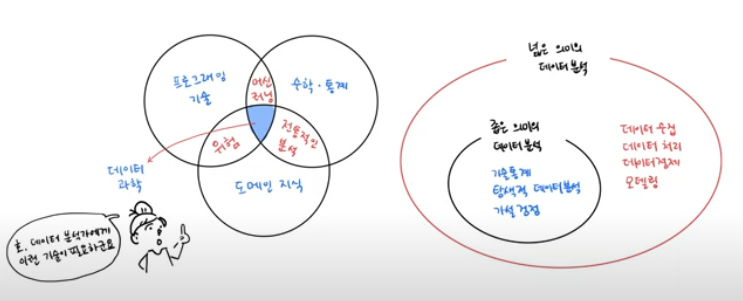 프로그래밍
기술
머신
러닝
수학·통계
위험
전통적인
분석
도메인 지식
데이터
과학
호, 데이터 분석가에게
이런 기술이 필요하군요
넓은 의미의
데이터 분석
좁은 의미의
데이터 분석
기술통계
탐색적 데이터분석
가설 검정
데이터 수집
데이터 처리
데이터정제
모델링